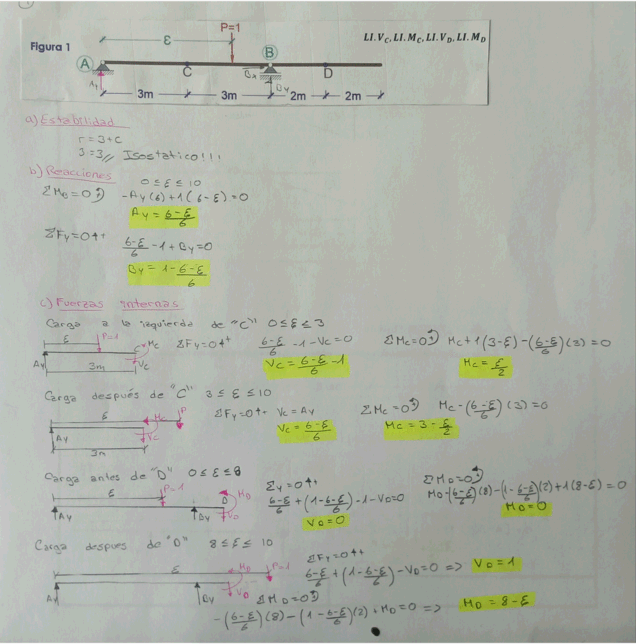 Figura 1
P=1
LI.V_C, LI.M_C, LI.V_D, LI.M_D
ε
A B
C D
Ay Bx By
3m 3m 2m 2m
a) Estabilidad
r = 3+C
3 = 3 // Isostatico!!!
b) Reacciones 0 ≤ ε ≤ 10
ΣM_B = 0 -Ay(6)+1(6-ε)=0
Ay = 6-ε/6
ΣFy=0 ↑+ 6-ε/6 -1+By=0
By = 1-6-ε/6
c) Fuerzas internas
Carga a la izquierda de "C" 0≤ε≤3
ε P=1 Mc
Ay 3m Vc
ΣFy=0↑+ 6-ε/6 -1-Vc=0
Vc = 6-ε/6 -1
ΣMc=0 Mc+1(3-ε)-(6-ε/6)(3)=0
Mc = ε/2
Carga después de "C" 3≤ε≤10
ε Mc P
Ay Vc
3m
ΣFy=0↑+ Vc=Ay
Vc = 6-ε/6
ΣMc=0 Mc-(6-ε/6)(3)=0
Mc = 3-ε/2
Carga antes de "D" 0≤ε≤8
ε P=1 M_D
D
Ay By V_D
Σy=0↑+
6-ε/6 + (1-6-ε/6) -1-V_D=0
V_D=0
ΣM_D=0
M_D-(6-ε/6)(8)-(1-6-ε/6)(2)+1(8-ε)=0
M_D=0
Carga despues de "D" 8≤ε≤10
ε M_D P=1
Ay By V_D
ΣFy=0↑+
6-ε/6 + (1-6-ε/6) -V_D=0 => V_D=1
ΣM_D=0
-(6-ε/6)(8)-(1-6-ε/6)(2)+M_D=0 => M_D=8-ε